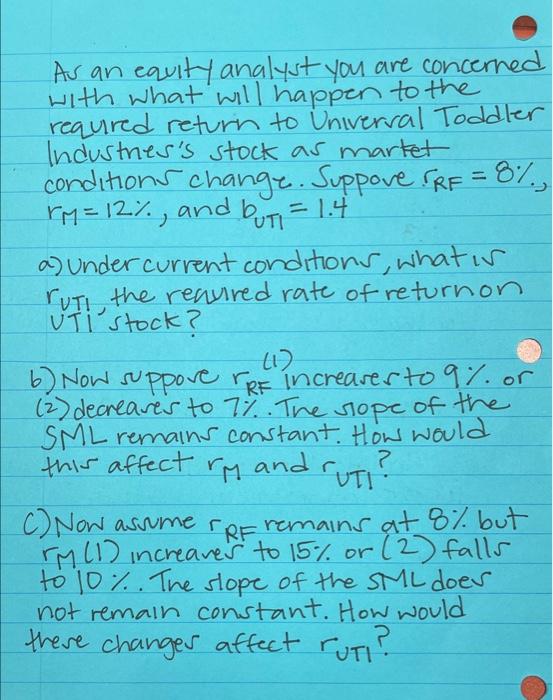 As an equity analyst you are concerned
with what will happen to the
required return to Universal Toddler
Industries's stock as market
conditions change. Suppose rRF = 8%,
rM = 12%, and bUTI = 1.4
a) Under current conditions, what is
rUTI, the required rate of return on
UTI stock?
b) Now suppose rRF (1) increases to 9% or
(2) decreases to 7%. The slope of the
SML remains constant. How would
this affect rM and rUTI?
C) Now assume rRF remains at 8% but
rM (1) increases to 15% or (2) falls
to 10%. The slope of the SML does
not remain constant. How would
these changes affect rUTI?